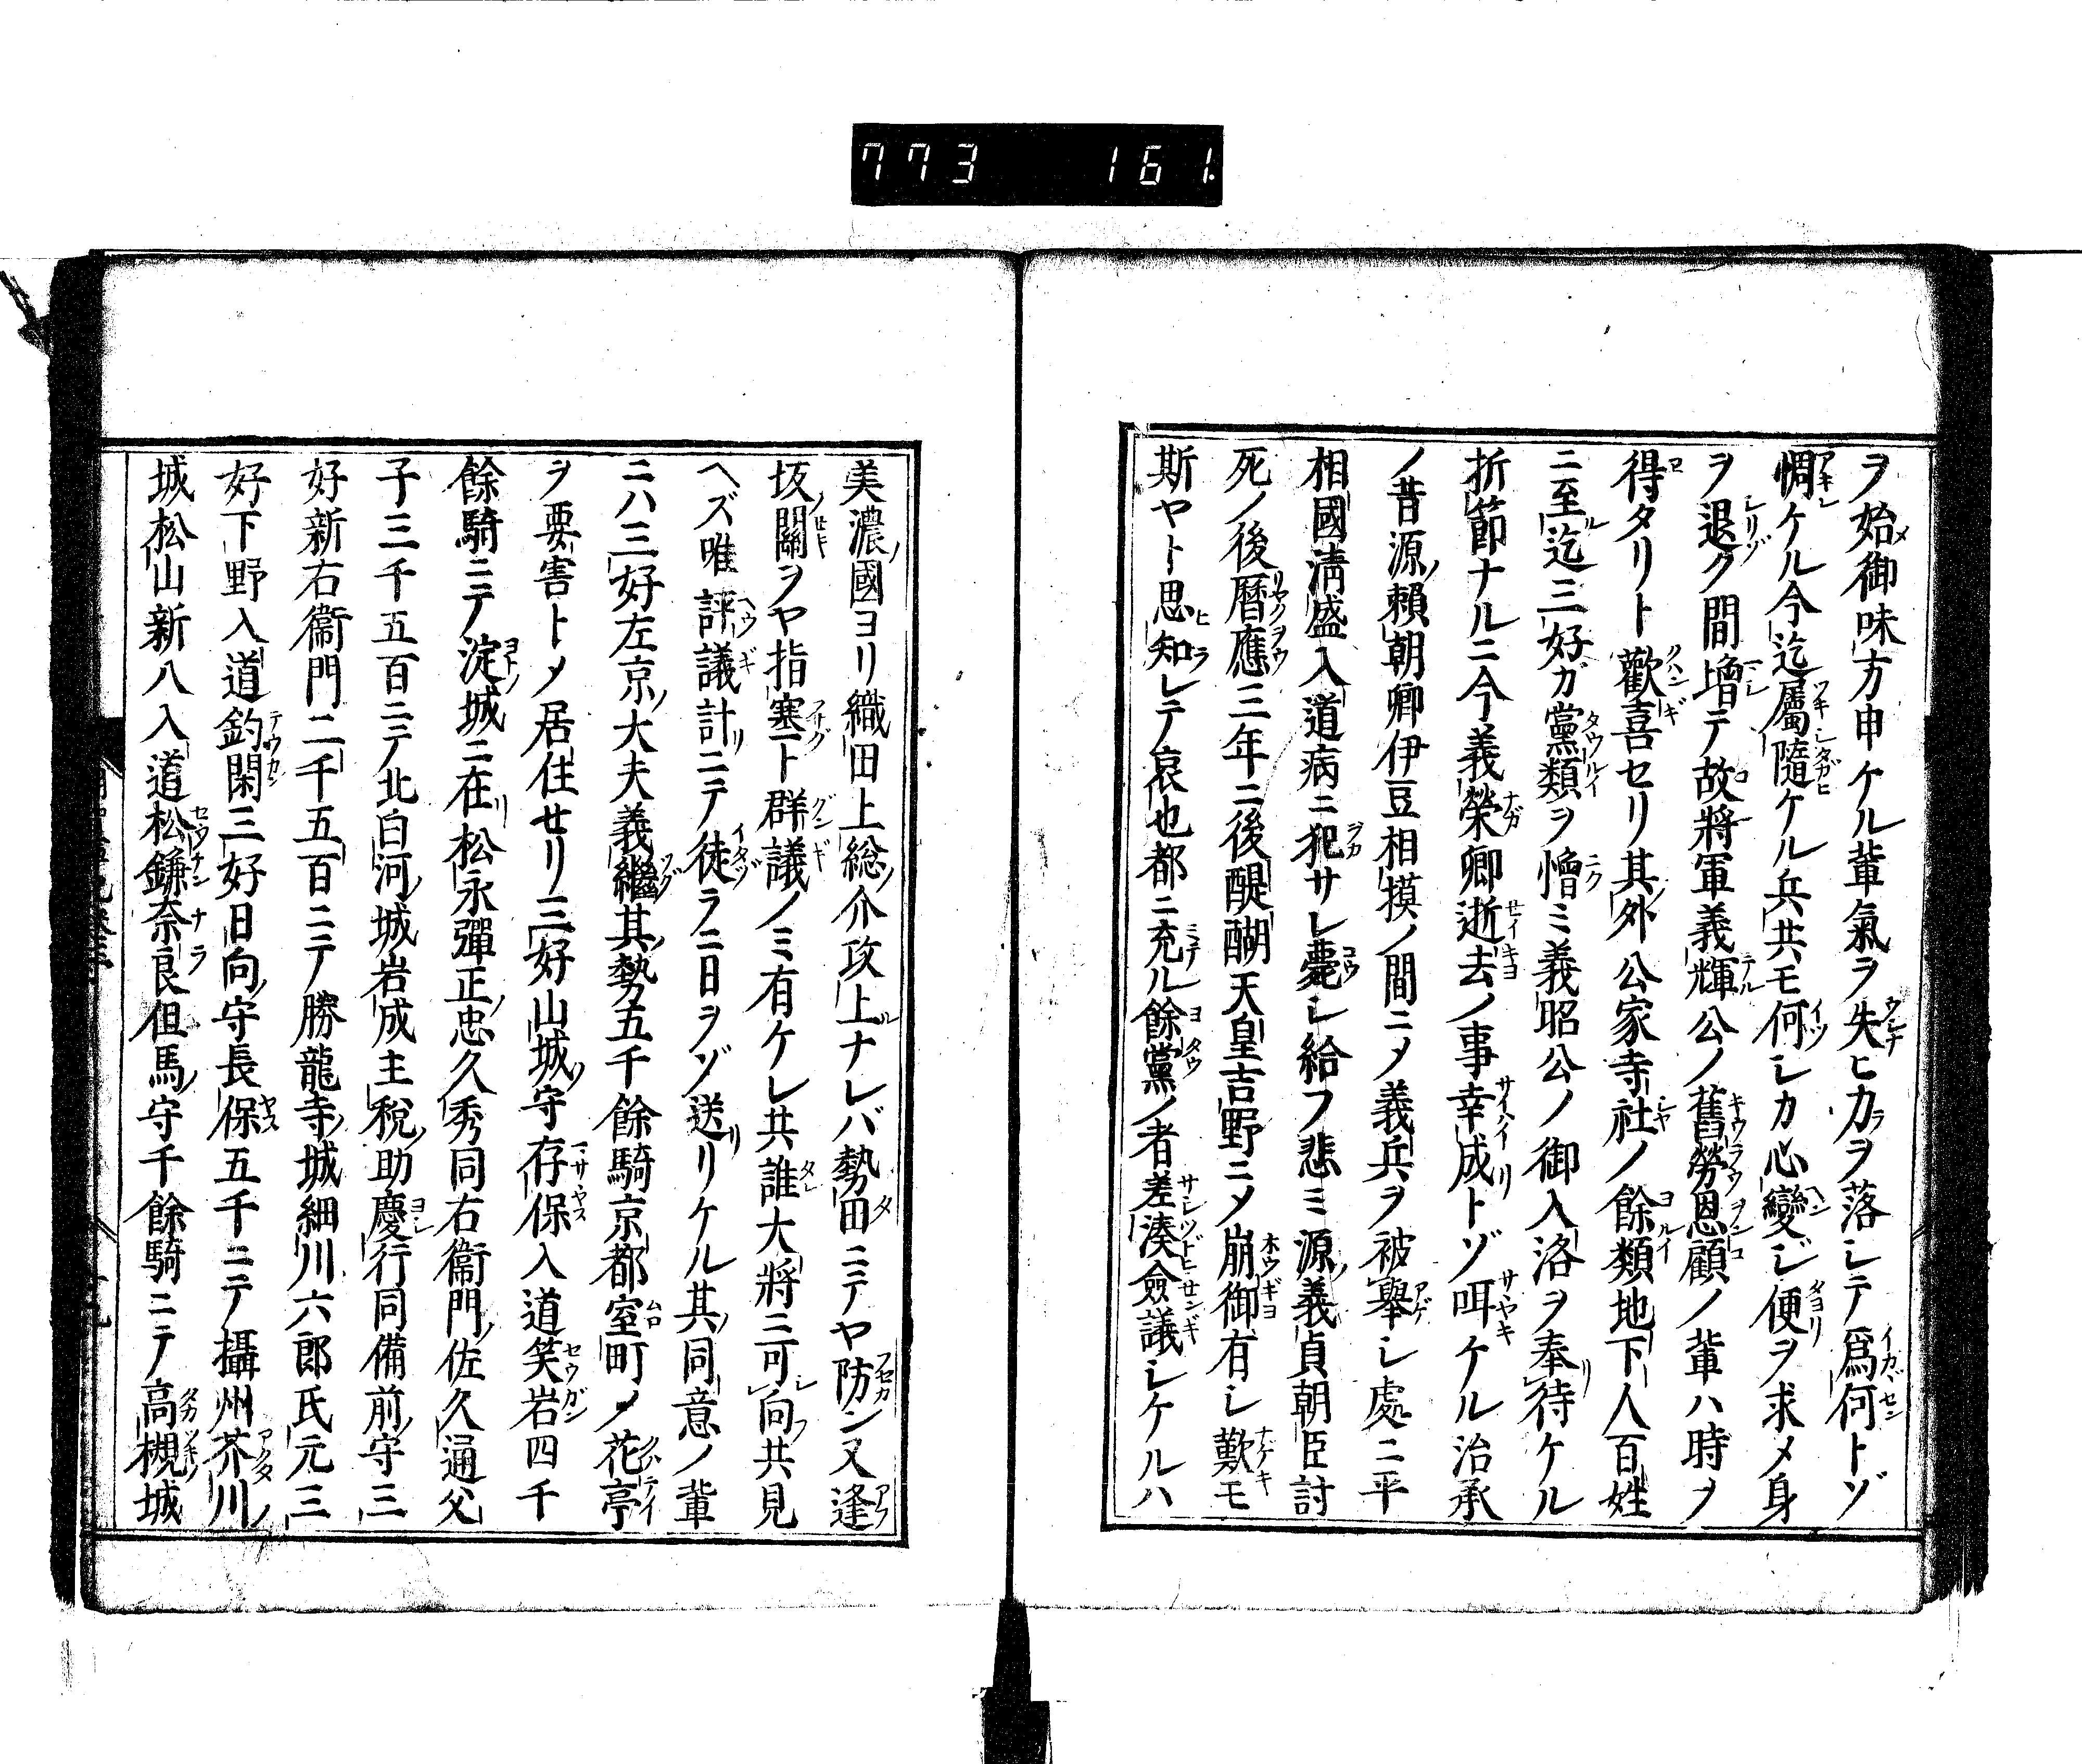 773 161.
ヲ始メ御味方申ケル輩氣ヲ失ヒ力ヲ落シテ爲何トゾ
惘ケル今迄屬隨ケル兵共モ何シカ心變ジ便ヲ求メ身
ヲ退ク間増テ故將軍義輝公ノ舊勞恩顧ノ輩ハ時ヲ
得タリト歡喜セリ其外公家寺社ノ餘類地下人百姓
ニ至ル迄三好ガ黨類ヲ憎ミ義昭公ノ御入洛ヲ奉待ケル
折節ナルニ今義榮卿逝去ノ事幸成トゾ咡ケル治承
ノ昔源ノ賴朝卿伊豆相摸ノ間ニメ義兵ヲ被擧シ處ニ平
相國淸盛入道病ニ犯サレ薨シ給フ悲ミ源ノ義貞朝臣討
死ノ後曆應三年ニ後醍醐天皇吉野ニメ崩御有シ歎モ
斯ヤト思知レテ哀也都ニ充ル餘黨ノ者差湊僉議シケルハ
美濃ノ國ヨリ織田上総ノ介攻上ルナレバ勢田ニテヤ防ン又逢
坂ノ關ヲヤ指塞ト群議ノミ有ケレ共誰大將ニ可向共見
ヘズ唯評議計リニテ徒ラニ日ヲゾ送リケル其ノ同意ノ輩
ニハ三好左京ノ大夫義繼其ノ勢五千餘騎京都室町ノ花亭
ヲ要害トメ居住セリ三好山城ノ守存保入道笑岩四千
餘騎ニテ淀ノ城ニ在リ松永彈正ノ忠久秀同右衞門ノ佐久通父
子三千五百ニテ北白河ノ城岩成主税ノ助慶行同備前ノ守三
好新右衞門二千五百ニテ勝龍寺ノ城細川六郎氏元三
好下野入道釣閑三好日向ノ守長保五千ニテ攝州芥川ノ
城松山新八入道松鎌奈良但馬ノ守千餘騎ニテ高槻ノ城